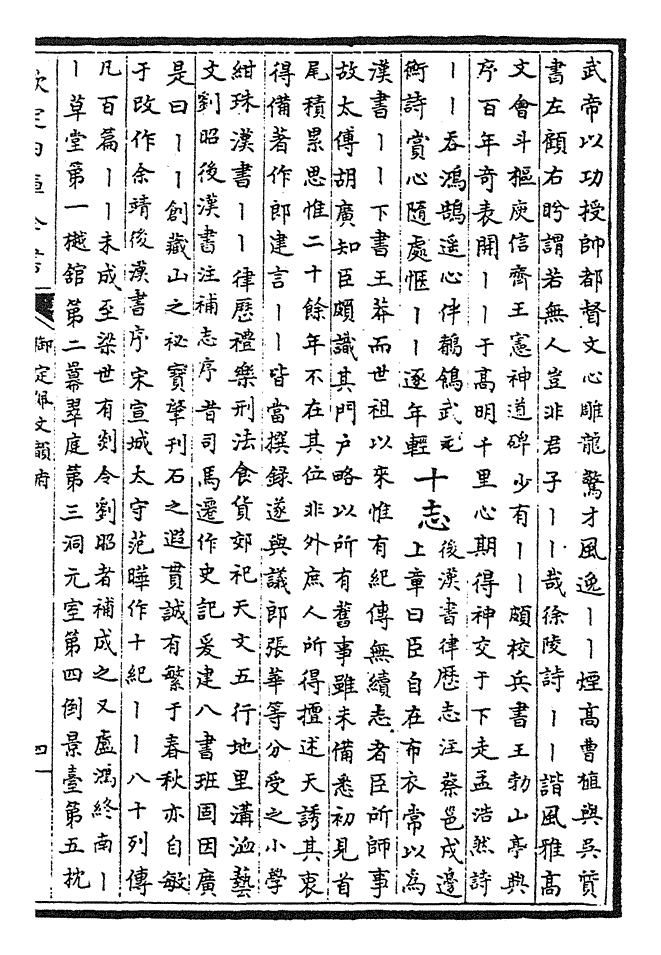 武帝以功授帥都督文心雕龍驚才風逸丨丨煙高曹植與吳質
書左顧右眄謂若無人豈非君子丨丨哉徐陵詩丨丨諧風雅高
文會斗樞庾信齊王憲神道碑少有丨丨頗校兵書王勃山亭興
序百年奇表開丨丨于高明千里心期得神交于下走孟浩然詩
丨丨吞鴻鵠遥心伴鶺鴒武元
衡詩賞心隨處愜丨丨逐年輕
十志
後漢書律歴志注蔡邕戍邊
上章曰臣自在布衣常以爲
漢書丨丨下書王莽而世祖以來惟有紀傳無續志者臣所師事
故太傅胡廣知臣頗識其門户略以所有舊事雖未備悉初見首
尾積累思惟二十餘年不在其位非外庶人所得擅述天誘其衷
得備著作郎建言丨丨皆當撰録遂與議郎張華等分受之小學
紺珠漢書丨丨律歴禮樂刑法食貨郊祀天文五行地里溝洫藝
文劉昭後漢書注補志序昔司馬遷作史記爰建八書班固因廣
是曰丨丨創藏山之祕寶肇刊石之遐貫誠有繁于春秋亦自敏
于改作余靖後漢書序宋宣城太守范曄作十紀丨丨八十列傳
凡百篇丨丨未成至梁世有剡令劉昭者補成之又盧鴻終南丨
丨草堂第一樾舘第二羃翠庭第三洞元室第四倒景臺第五枕
欽定四庫全書
御定佩文韻府
四